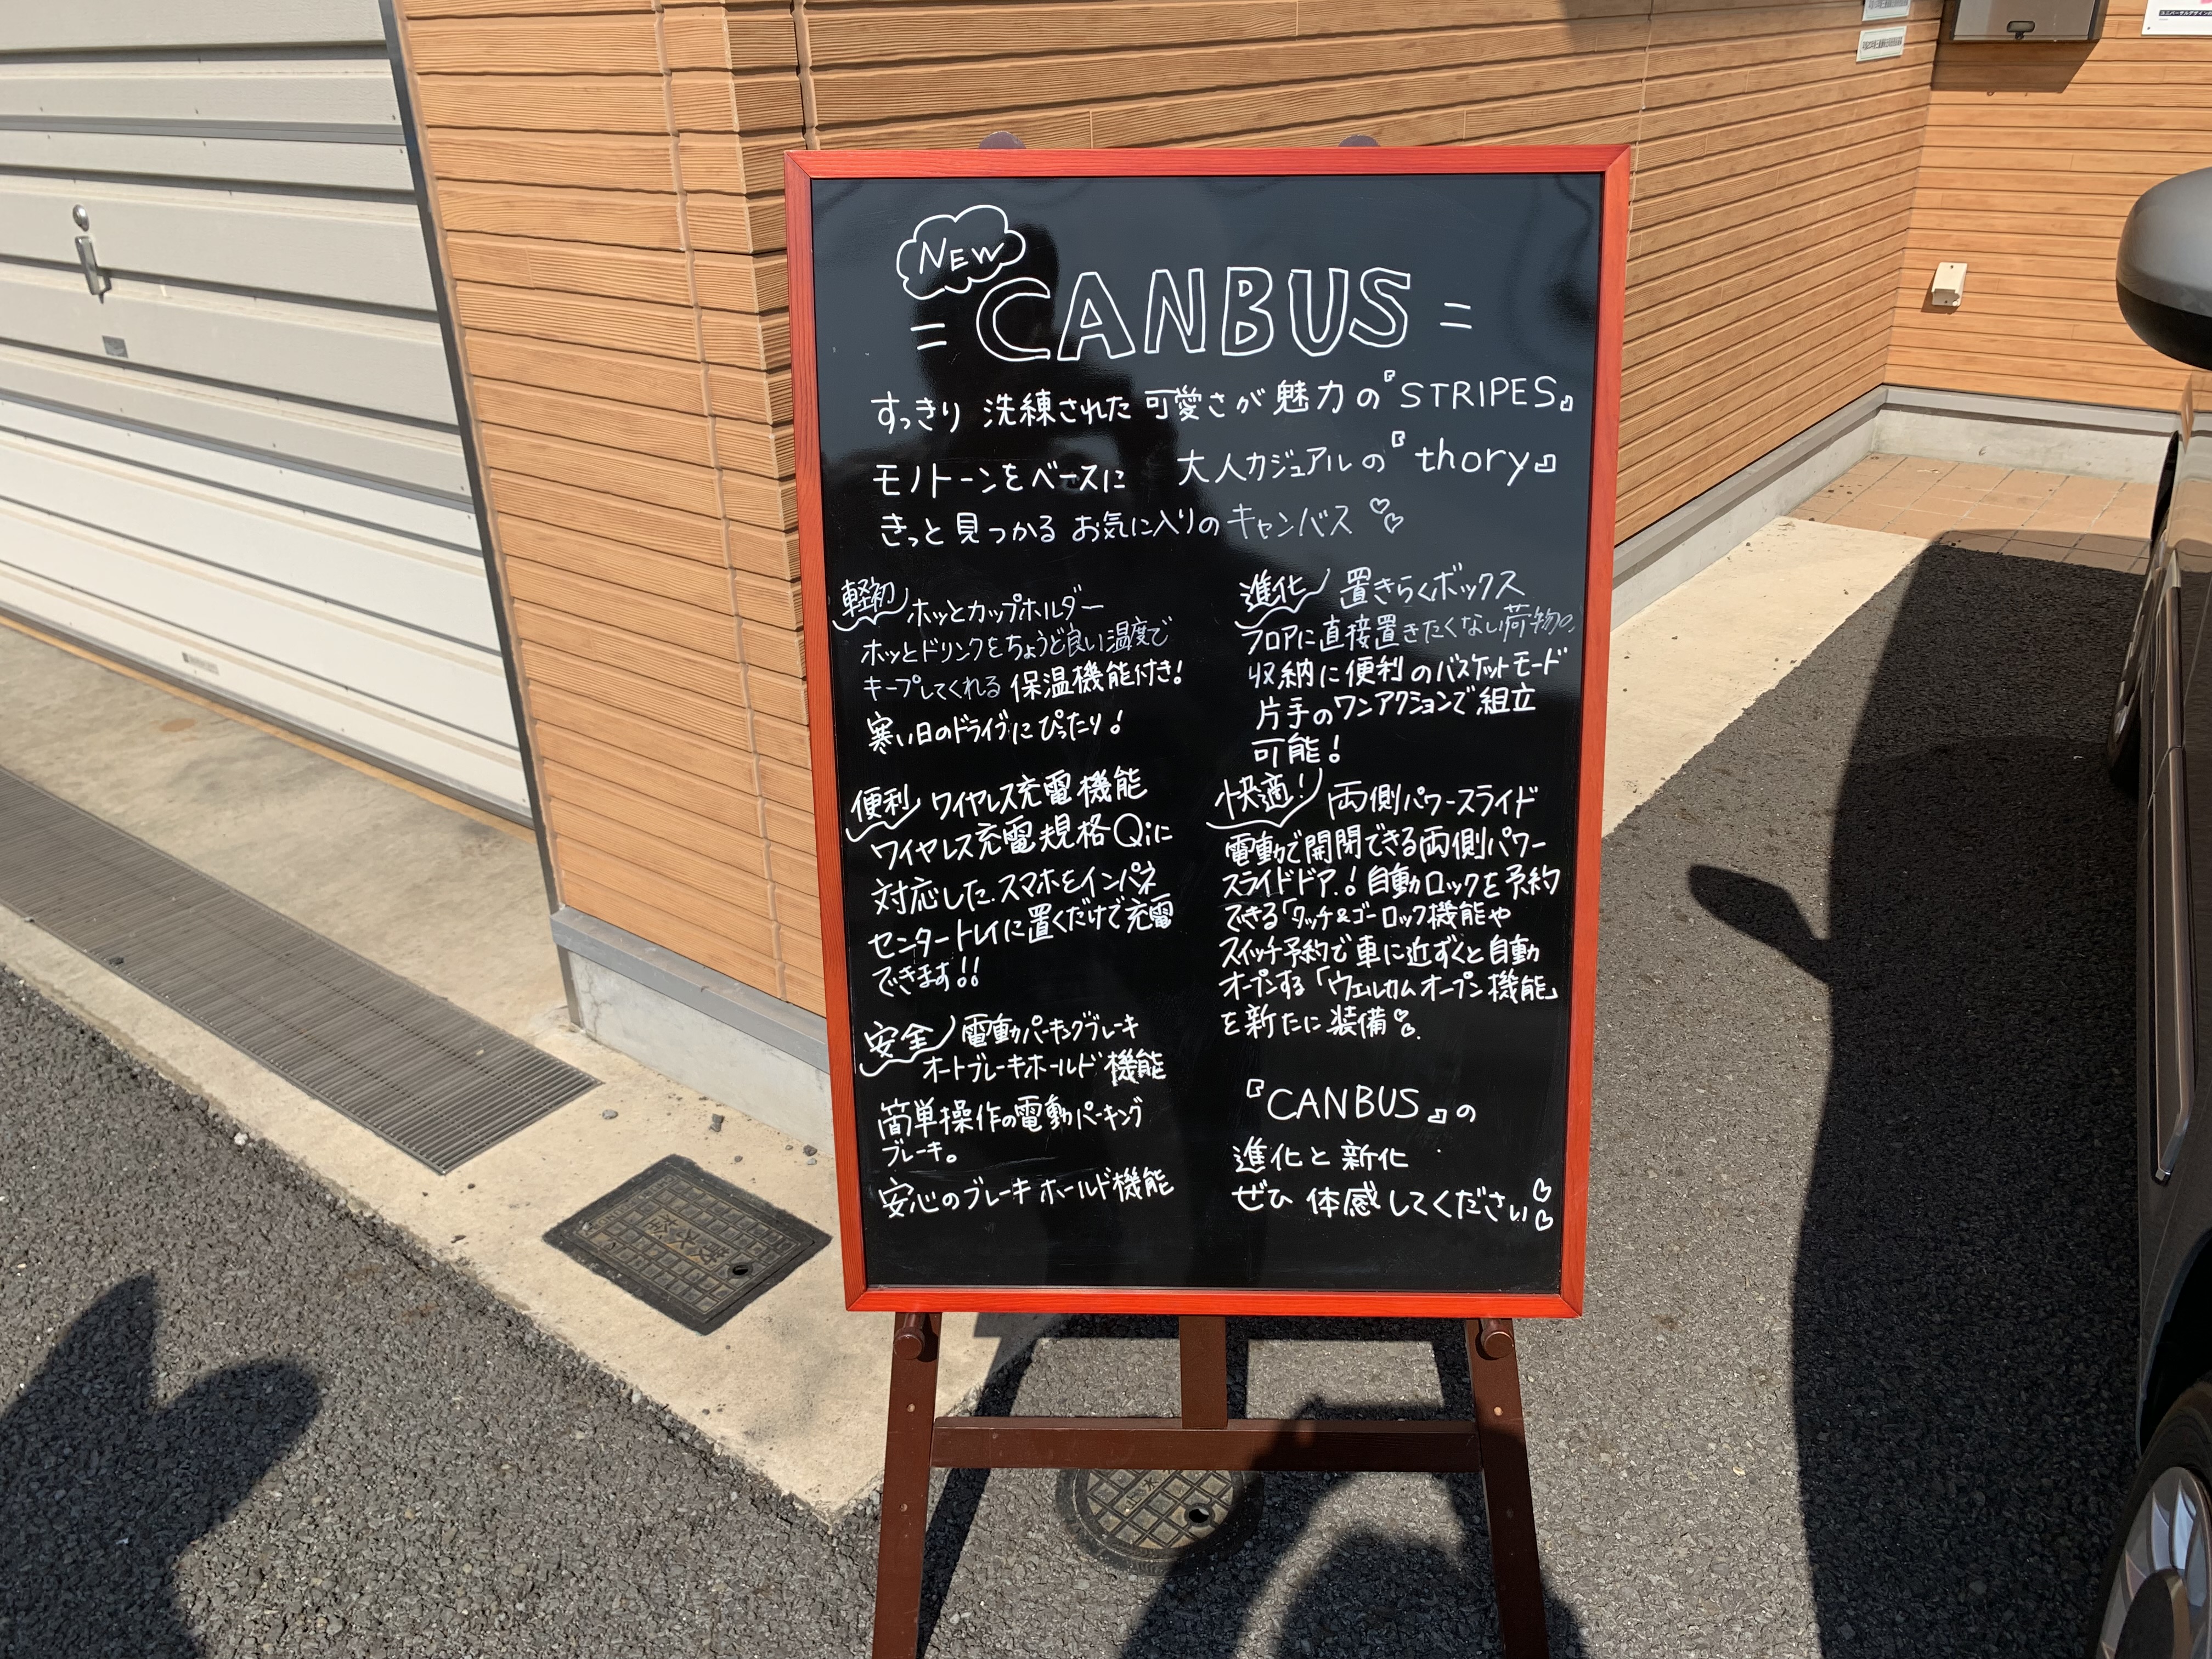 NEW
= CANBUS =
すっきり 洗練された 可愛さが 魅力の『STRIPES』
モノトーンをベースに 大人カジュアルの『thory』
きっと見つかる お気に入りのキャンバス♡♡
軽初 ホッとカップホルダー
ホッとドリンクをちょうど良い温度で
キープしてくれる 保温機能付き!
寒い日のドライブにぴったり!
便利 ワイヤレス充電機能
ワイヤレス充電規格Qiに
対応した.スマホをインパネ
センタートレイに置くだけで充電
できます!!
安全 電動パーキングブレーキ
オートブレーキホールド機能
簡単操作の電動パーキング
ブレーキ。
安心のブレーキホールド機能
進化 置きらくボックス
フロアに直接置きたくない荷物の
収納に便利のバスケットモード
片手のワンアクションで組立
可能!
快適! 両側パワースライド
電動で開閉できる両側パワー
スライドドア.!自動ロックを予約
できる「タッチ&ゴーロック機能や
スイッチ予約で車に近ずくと自動
オープンする「ウェルカムオープン機能」
を新たに装備♡
『CANBUS』の
進化と新化
ぜひ 体感してください♡♡